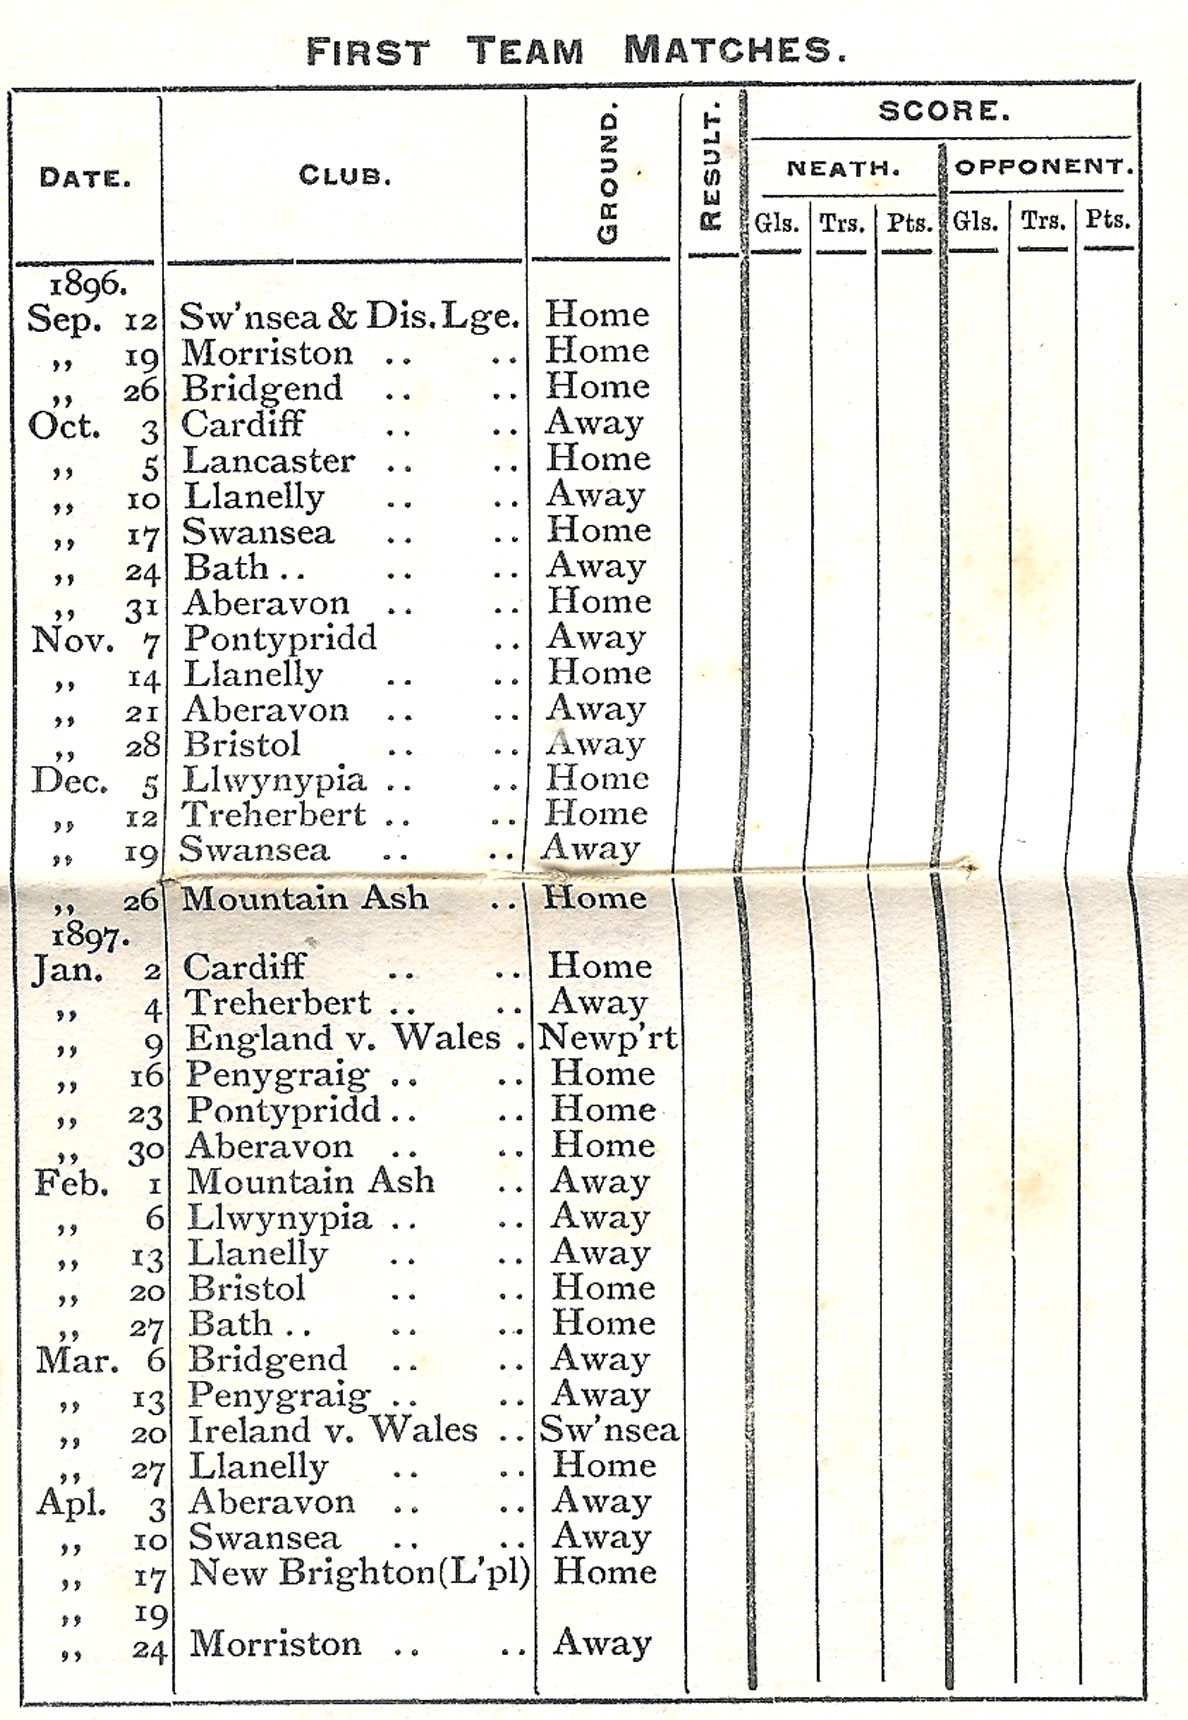 FIRST TEAM MATCHES.
DATE. CLUB. GROUND. RESULT. SCORE.
NEATH. OPPONENT.
Gls. Trs. Pts. Gls. Trs. Pts.
1896.
Sep. 12 Sw'nsea & Dis. Lge. Home
,, 19 Morriston .. .. Home
,, 26 Bridgend .. .. Home
Oct. 3 Cardiff .. .. Away
,, 5 Lancaster .. .. Home
,, 10 Llanelly .. .. Away
,, 17 Swansea .. .. Home
,, 24 Bath .. .. .. Away
,, 31 Aberavon .. .. Home
Nov. 7 Pontypridd .. Away
,, 14 Llanelly .. .. Home
,, 21 Aberavon .. .. Away
,, 28 Bristol .. .. Away
Dec. 5 Llwynypia .. .. Home
,, 12 Treherbert .. .. Home
,, 19 Swansea .. .. Away
,, 26 Mountain Ash .. Home
1897.
Jan. 2 Cardiff .. .. Home
,, 4 Treherbert .. .. Away
,, 9 England v. Wales . Newp'rt
,, 16 Penygraig .. .. Home
,, 23 Pontypridd .. .. Home
,, 30 Aberavon .. .. Home
Feb. 1 Mountain Ash .. Away
,, 6 Llwynypia .. .. Away
,, 13 Llanelly .. .. Away
,, 20 Bristol .. .. Home
,, 27 Bath .. .. .. Home
Mar. 6 Bridgend .. .. Away
,, 13 Penygraig .. .. Away
,, 20 Ireland v. Wales .. Sw'nsea
,, 27 Llanelly .. .. Home
Apl. 3 Aberavon .. .. Away
,, 10 Swansea .. .. Away
,, 17 New Brighton (L'pl) Home
,, 19
,, 24 Morriston .. .. Away